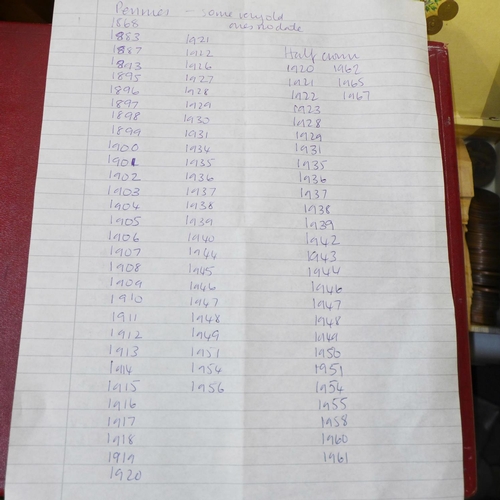 Pennies - some very old
ones no date
1868
1883
1887
1893
1895
1896
1897
1898
1899
1900
1901
1902
1903
1904
1905
1906
1907
1908
1909
1910
1911
1912
1913
1914
1915
1916
1917
1918
1919
1920
1921
1922
1926
1927
1928
1929
1930
1931
1934
1935
1936
1937
1938
1939
1940
1944
1945
1946
1947
1948
1949
1951
1954
1956
Half crown
1920 1962
1921 1965
1922 1967
1923
1928
1929
1931
1935
1936
1937
1938
1939
1942
1943
1944
1946
1947
1948
1949
1950
1951
1954
1955
1958
1960
1961